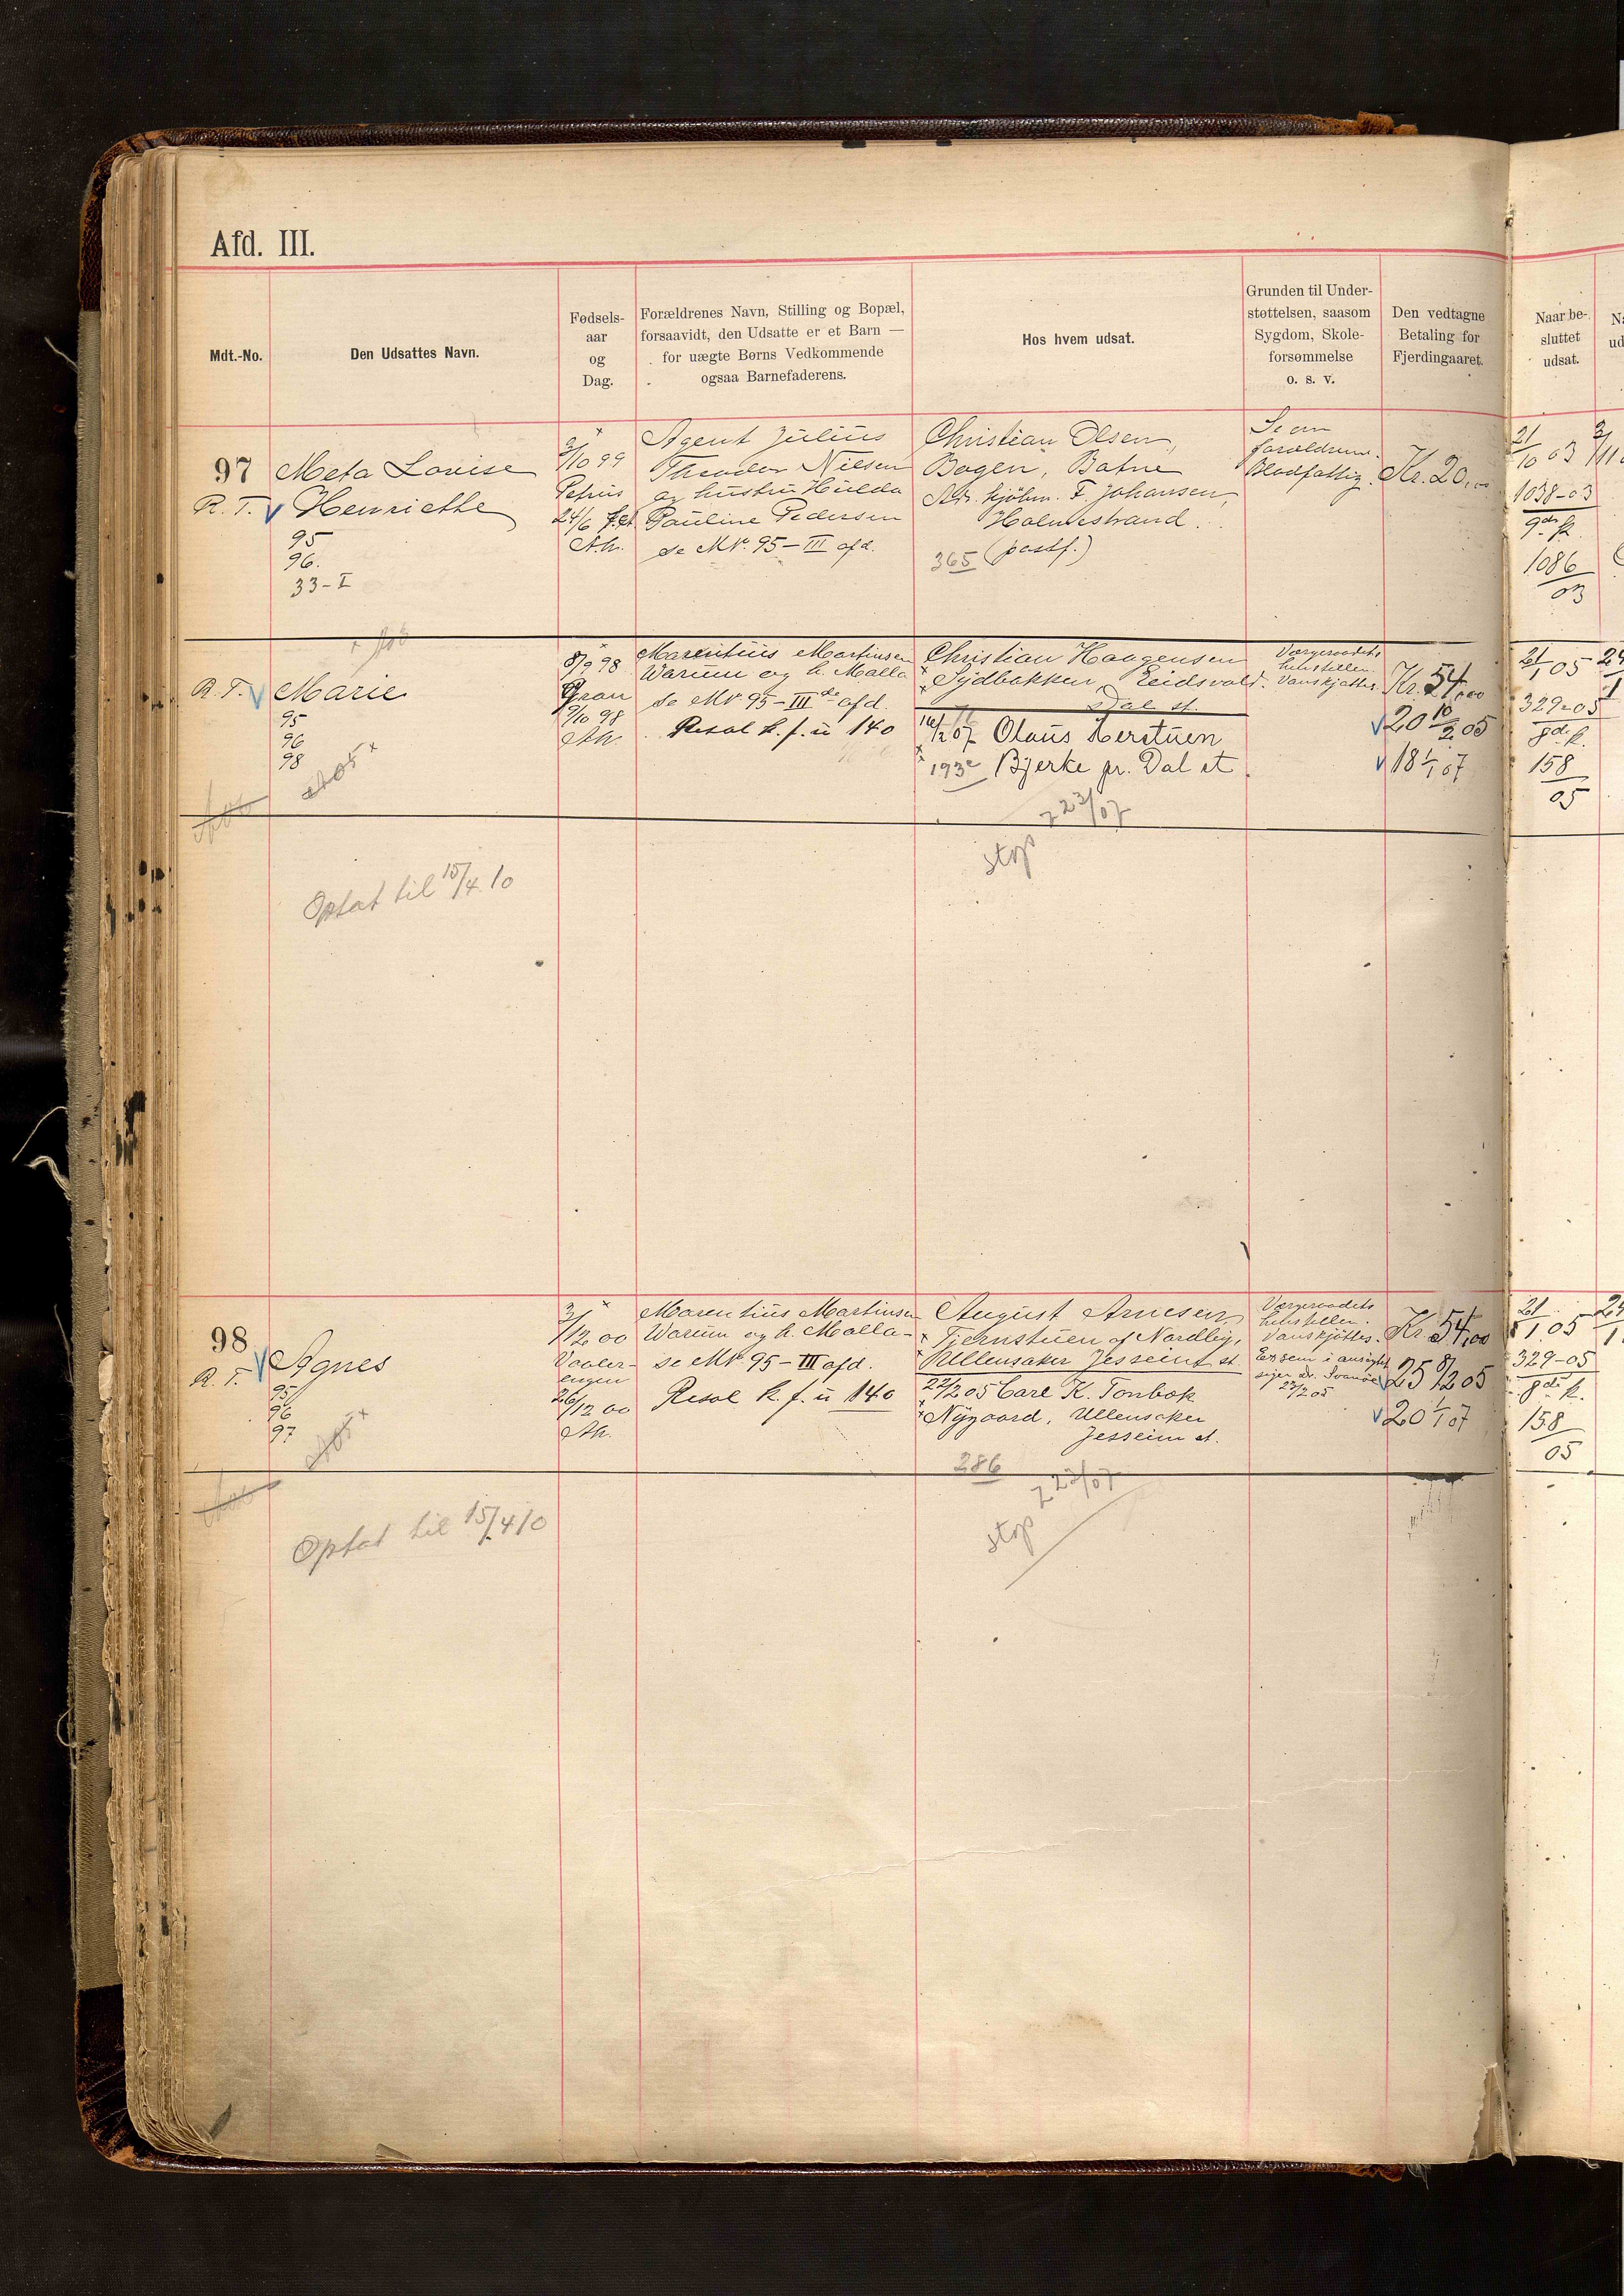 Afd. III.
Mdt.-No.
Den Udsattes Navn.
Fødsels-
aar
og
Dag.
Forældrenes Navn, Stilling og Bopæl,
forsaavidt, den Udsatte er et Barn —
for uægte Børns Vedkommende
ogsaa Barnefaderens.
Hos hvem udsat.
Grunden til Under-
støttelsen, saasom
Sygdom, Skole-
forsømmelse
o. s. v.
Den vedtagne
Betaling for
Fjerdingaaret.
Naar be-
sluttet
udsat.
97
R. T.
Meta Lovise
Henriette
95
96.
33-I
2/10 99
Petrus
24/6
Agent Julius
Theodor Nielsen
og hustru Hulda
Pauline Pedersen
se Nr. 95 – III afd.
Christian Olsen,
Bogen, Botne
Adr. kjøbm. F. Johansen,
Holmestrand.
(postf.)
365
Se om
forældrene.
Blodfattig.
Kr. 20,00
21/10 03
1038-03
1086/03
R. T. Marie
95
96
98
8/9 98
Gran
9/10 98
Marentius Martinsen
Warum og h. Malla
se Nr 95 – III de afd.
Resol k. f. u 140
Christian Haagensen
Sydbakken, Eidsvold.
Dal st.
Olaus Herstuen
Bjerke pr. Dal st
193
Vanskjøttes.
Kr. 54,00
20 10/2 05
18 1/1 07
21/1 05
329-05
158/05
23/07
stop
Optat til 15/4 10
98
R. T. Agnes
95
96
97
2/12 00
Vaaler-
engen
26/12 00
Marentius Martinsen
Warum og h. Malla-
se Nr. 95 – III afd.
Resol k. f. u 140
August Arnesen,
Tjernstuen af Nordby,
Ullensaker Jesseim st.
22/2 05 Carl K. Tonbok
Nygaard, Ullensaker
Jesseim st.
286
Vanskjøttes.
Exsem i ansigtet
siger dr.
22/2 05
Kr. 54,00
25 8/12 05
20 1/1 07
21/1 05
329-05
158/05
23/07
stop
Optat til 15/4 10